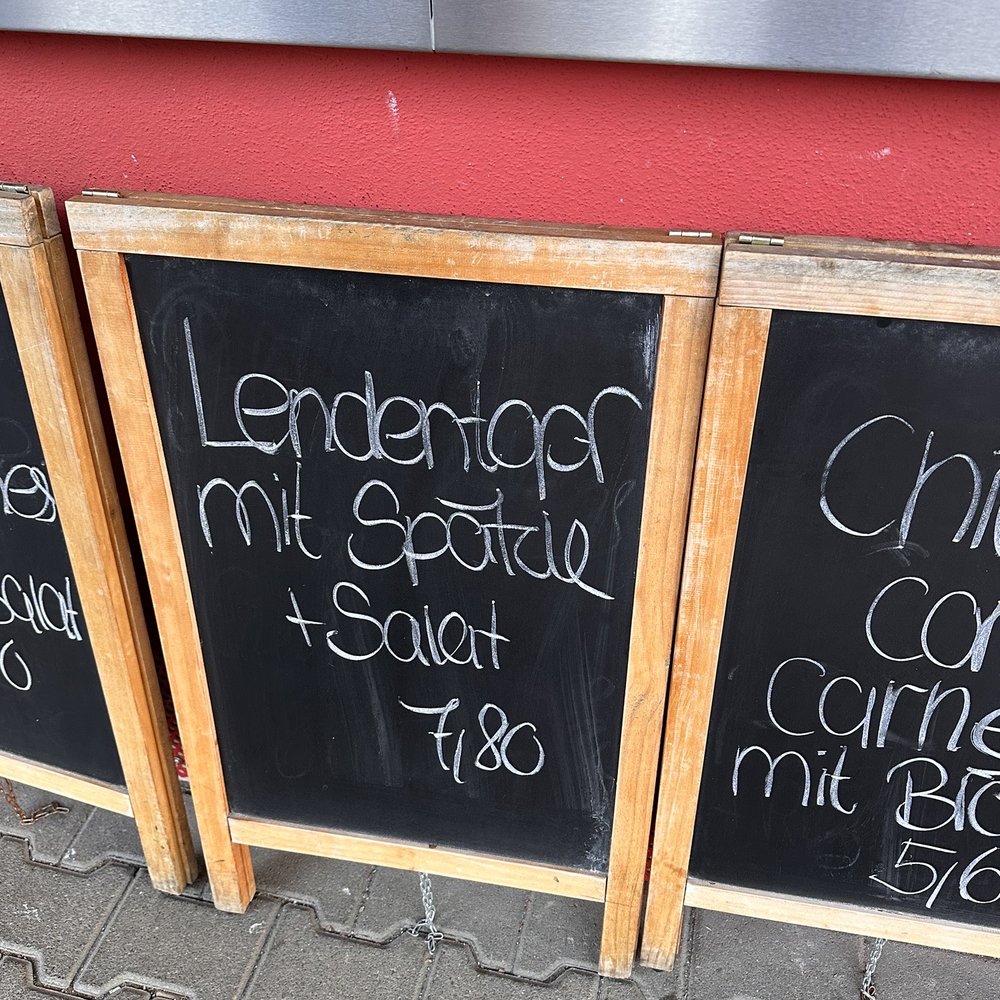 Salat
0
Lendentopf
mit Spätzle
+ Salat
7,80
Chi
Con
Carne
mit
5,6